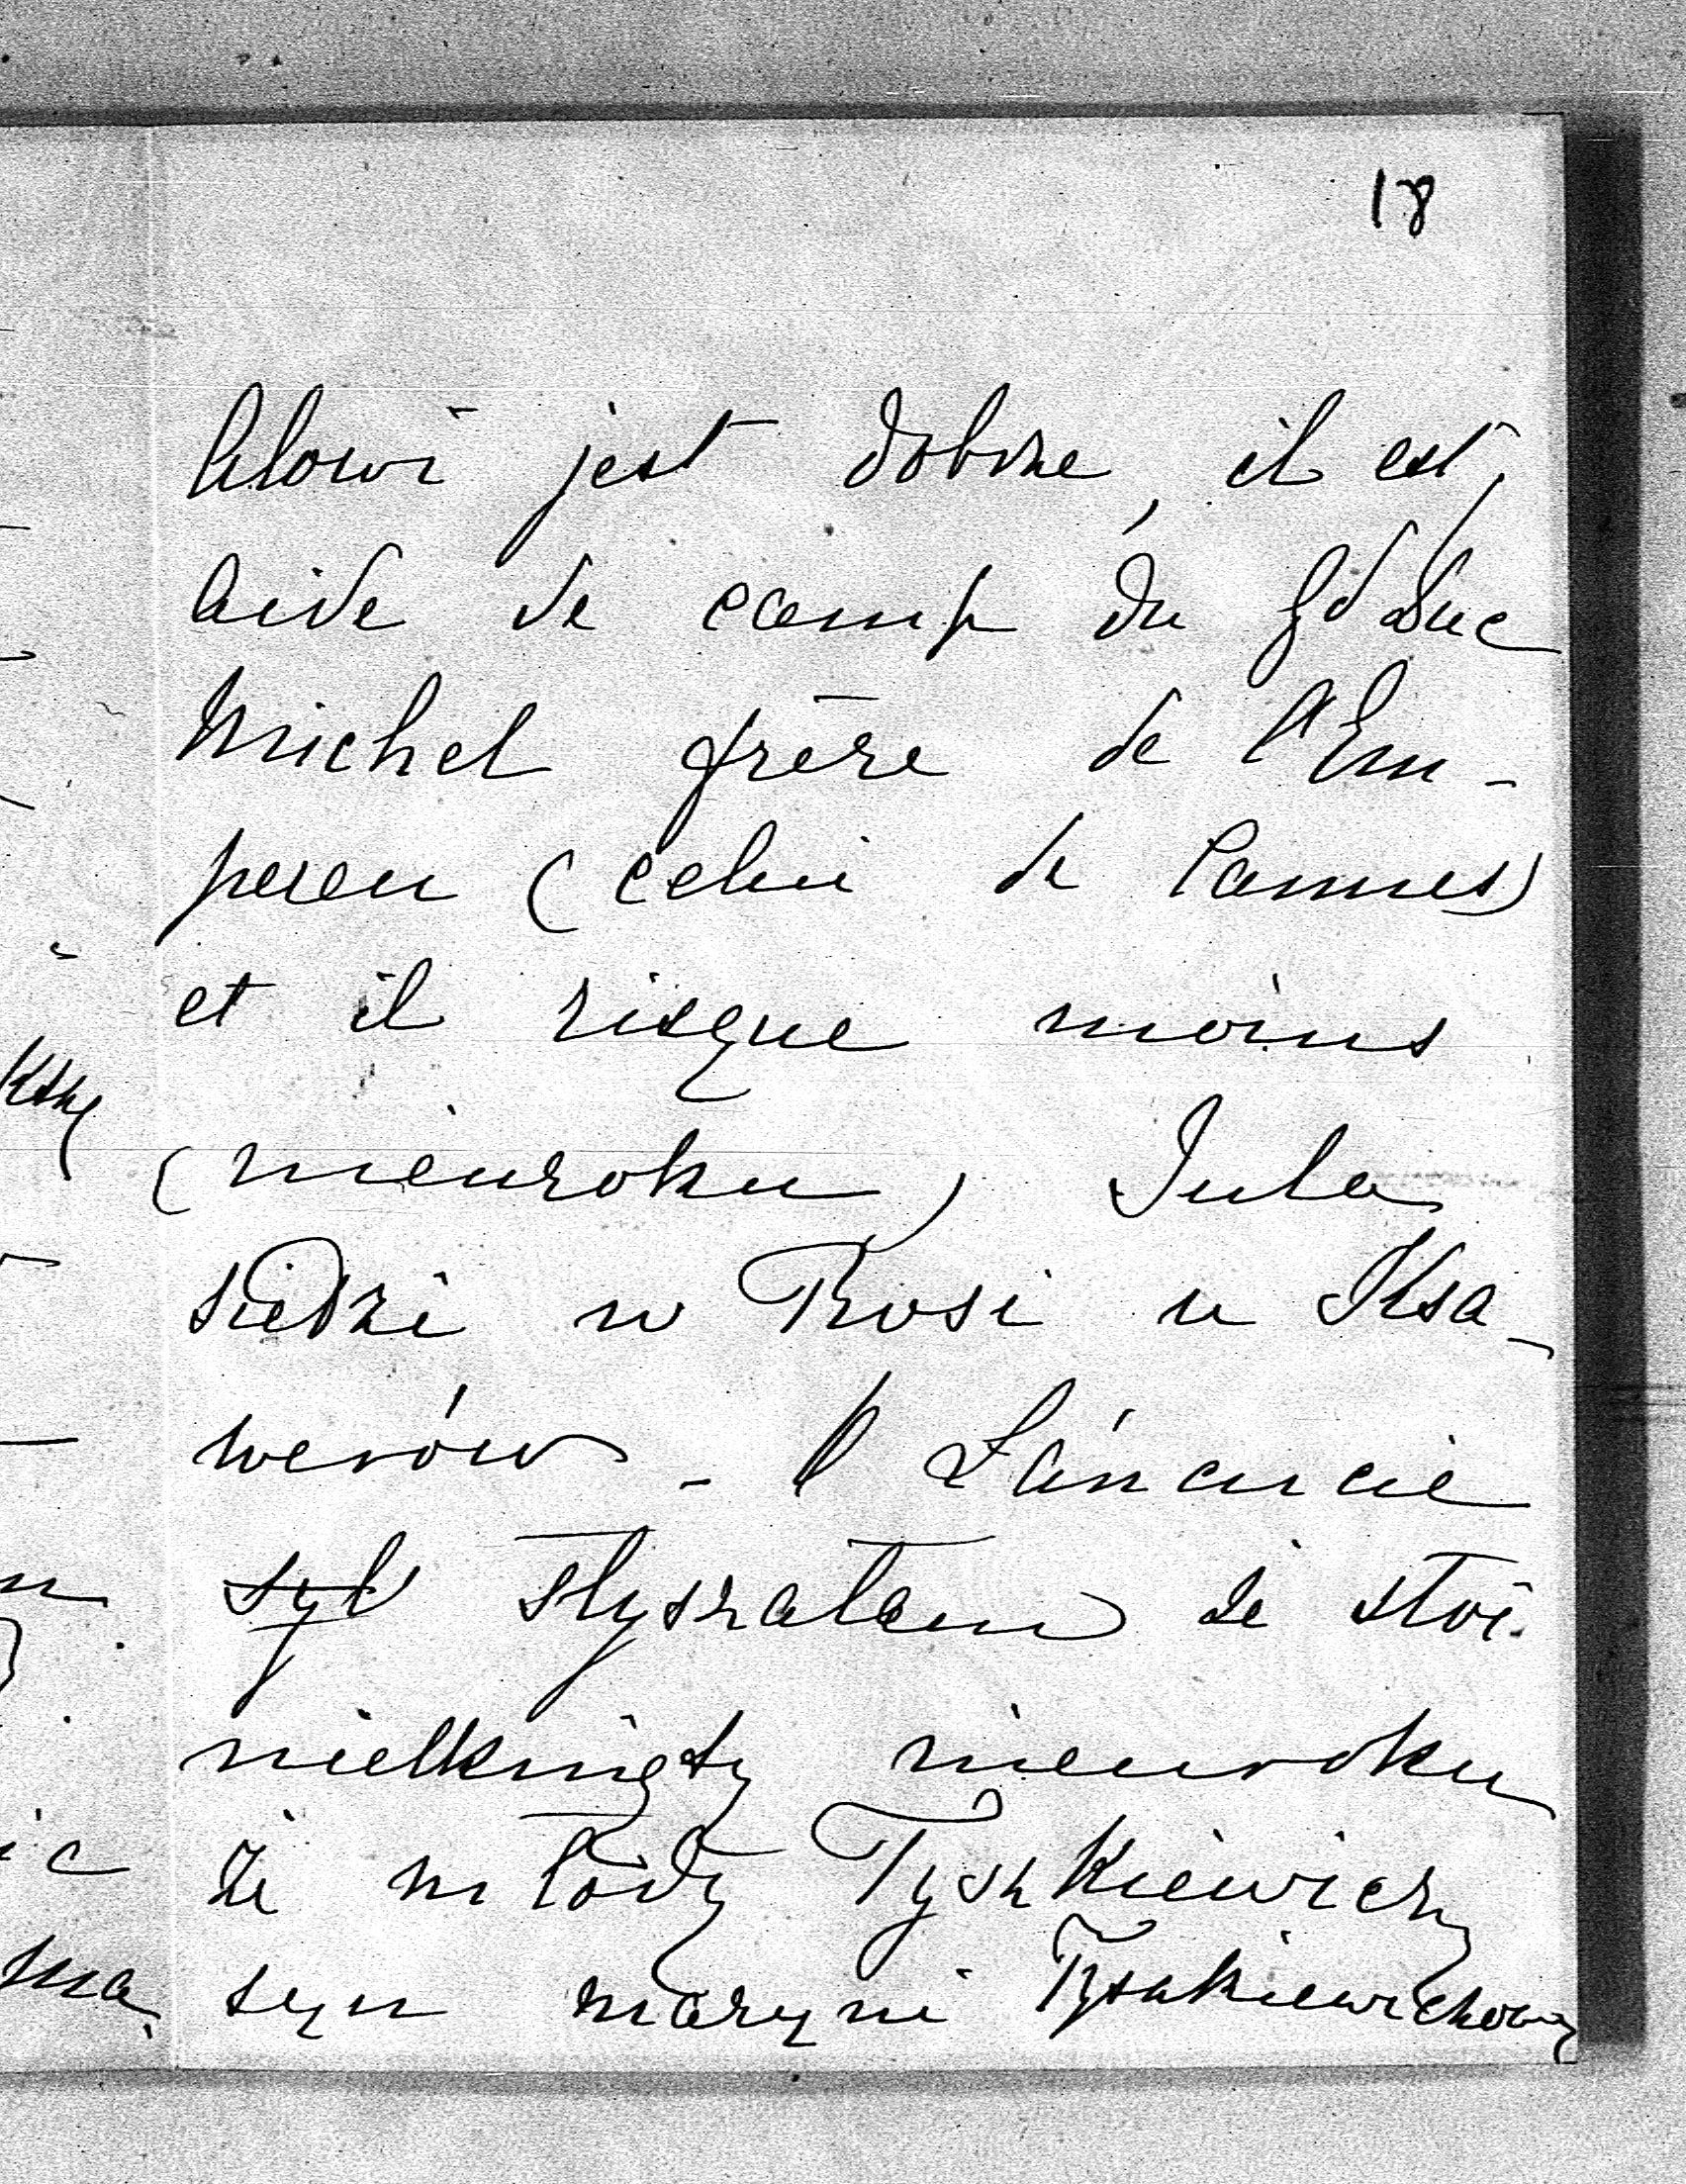 18
Alowi jest dobrze, il est
aide de camp du gd Duc
Michel frère de l'Em-
pereu (celui de Cannes)
et il risque moins
(nieuroku) Jula
siedzi w Rosi u Ksa-
werów - O Łáncucie
sył słyszałem że stoi
nietknięty nieuroku
że młody Tyszkiewicz
syn Maryni Tyszkiewiczowej